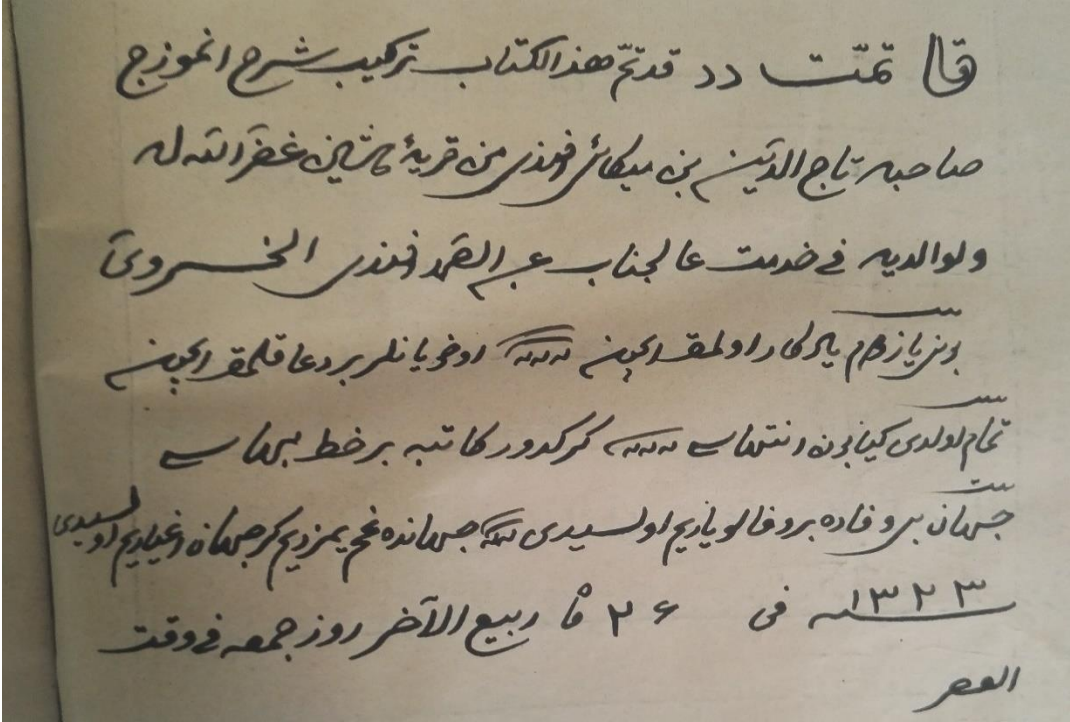 قال تمّت دد قد تمّ هذا الكتاب تركيب شرح انموزج
صاحبه تاج الدّين بن ميكائل فندى من قرية ماشين غفر الله له
ولوالديه في خدمت عالجناب عبد الصّمد افندى الخسروىّ
بونى يازدم يادكار اولمق ايچون اوخويانلر بر دعا قلمق ايچون
تمام اولدى كتابون انتهاسے كركدور كاتبه بر خط بهاسے
جهان بى وفاده بر وفالو ياريم اولسيدى جهانده غم يمزديم كر جهان اغياريم اولسيدى
١٣٢٣ فى ٢٦ ربيع الآخر روز جمعه فى وقت
العصر